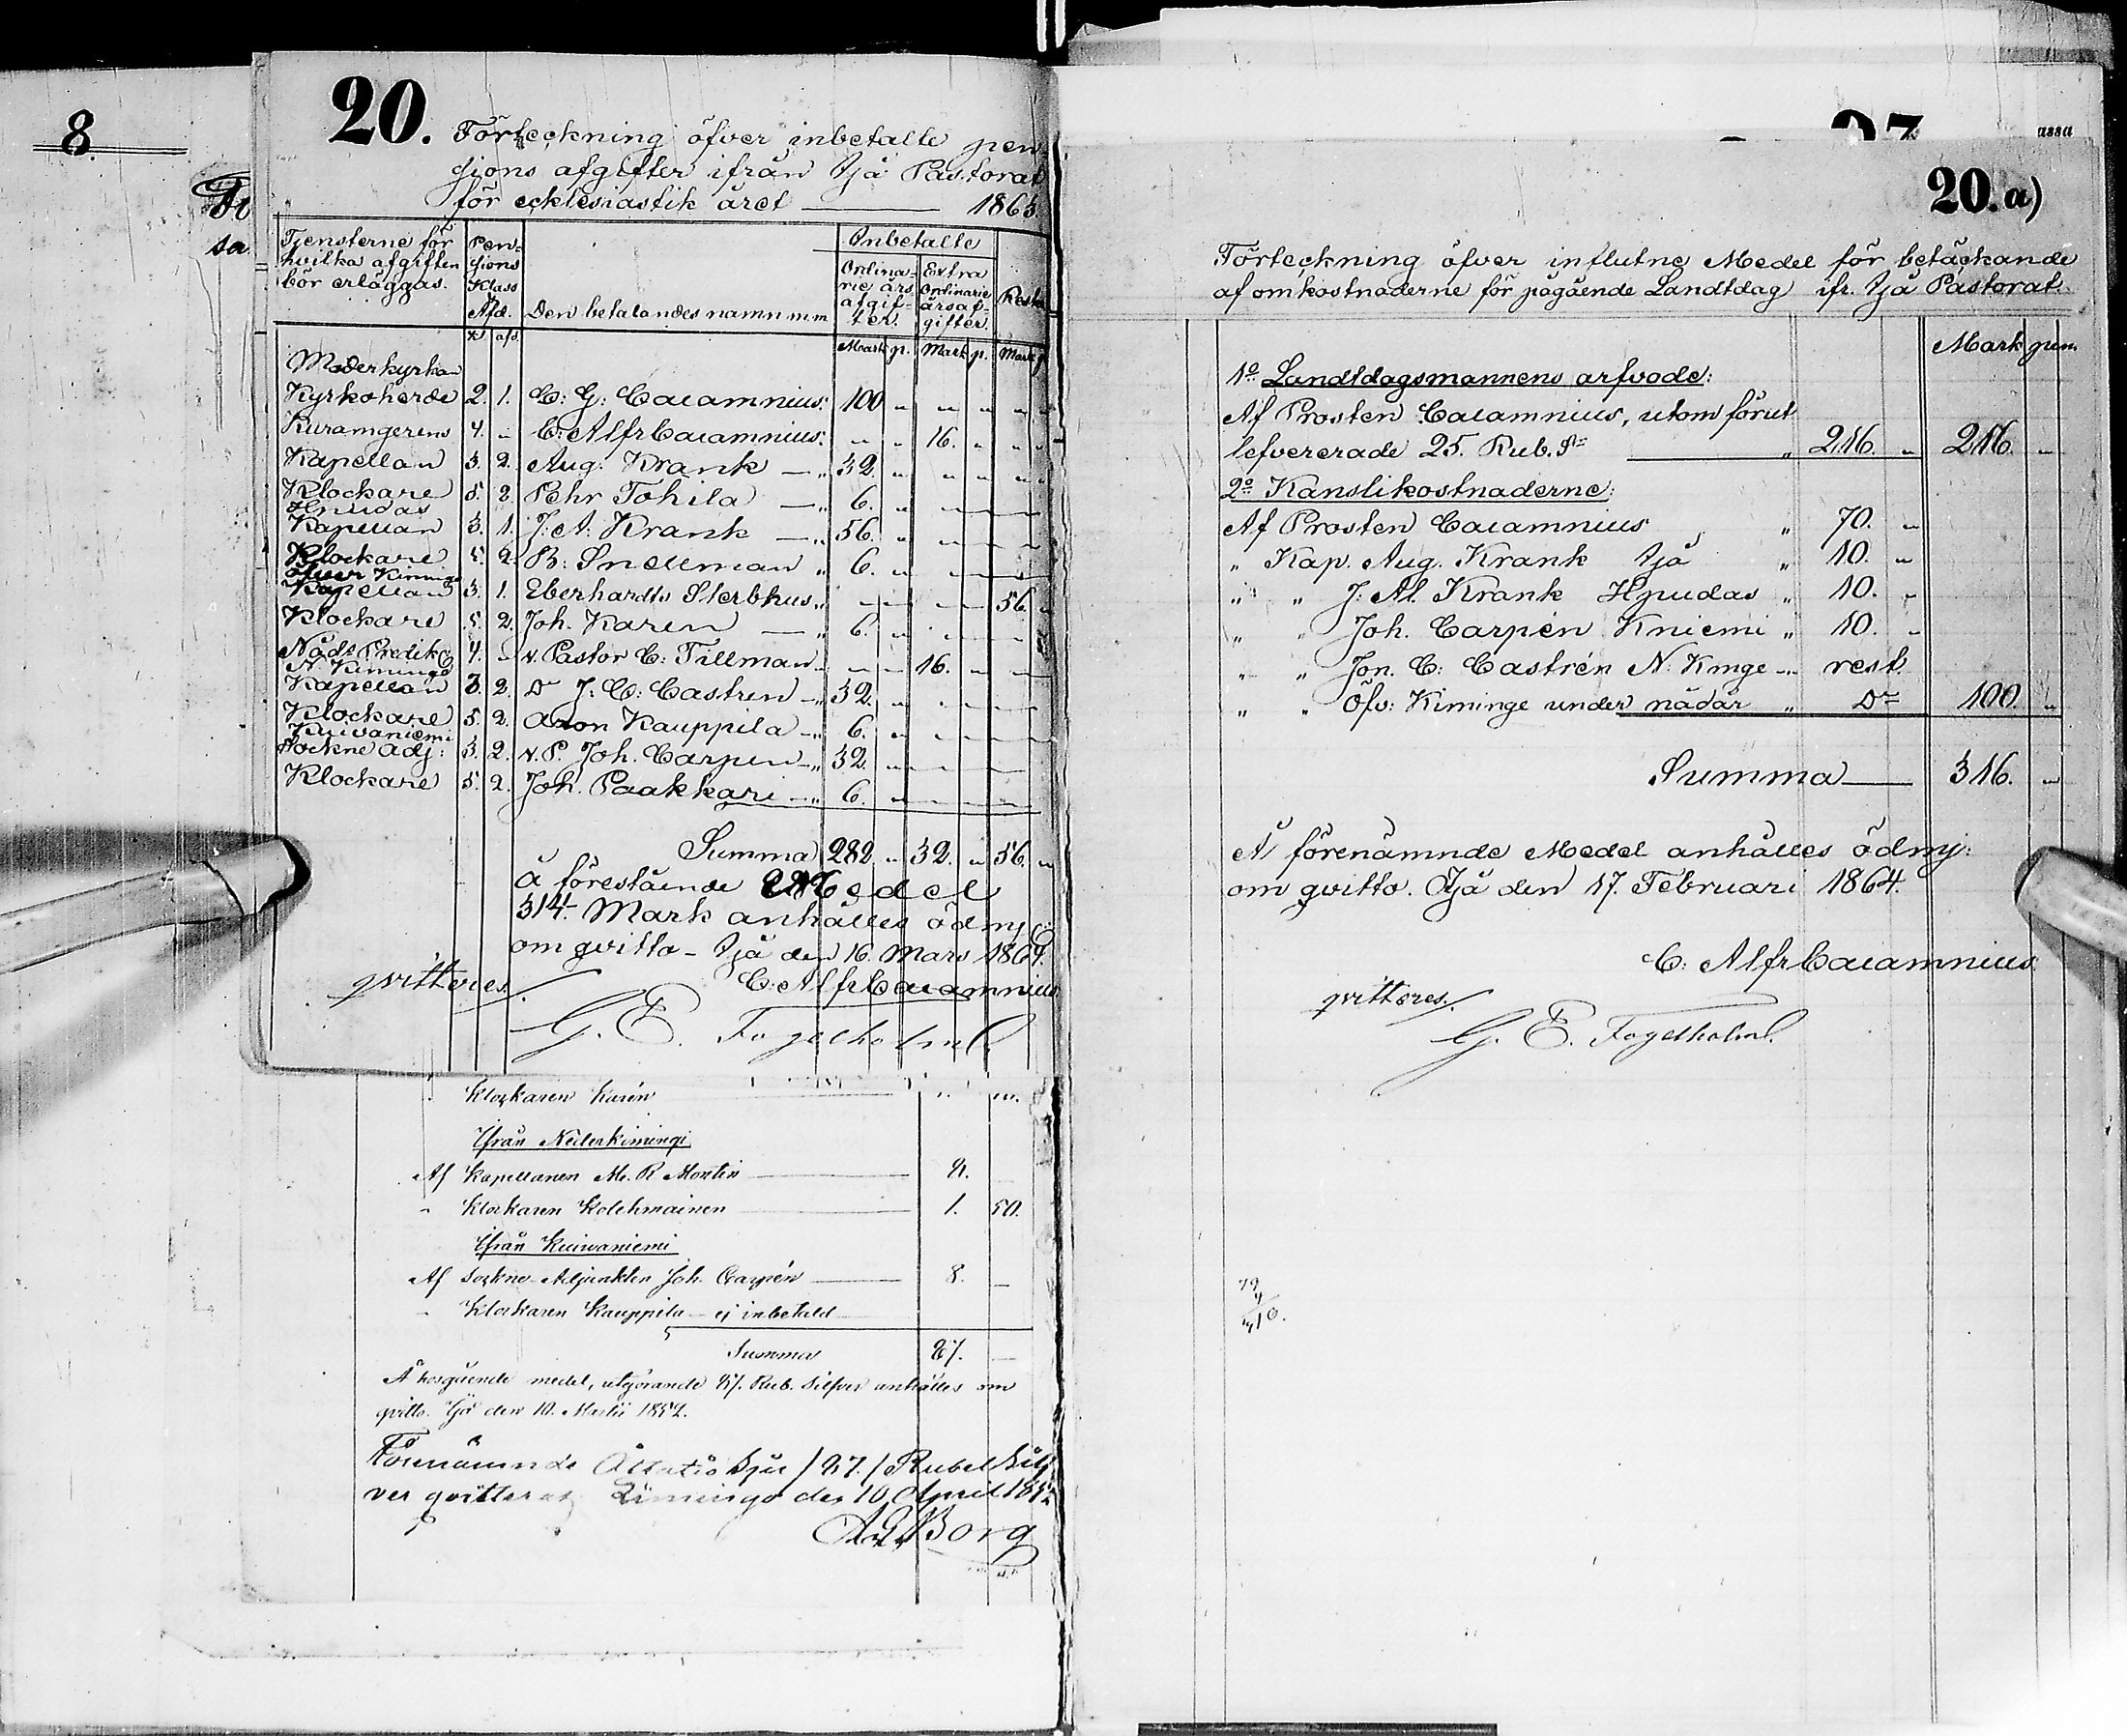 8.
20.
Förteckning öfver inbetalte pen
sions afgifter ifrån Ijå Pastorat
för ecklesiastik året — 1863.
Tjensterne för hvilka afgiften bör erläggas. Pensions Klass Afd. Den betalandes namn m m Inbetalte Ordinarie års afgifter. Extra Ordinarie årsafgifter. Resta
Kl afd. Mark p. Mark p. Mark p
Moderkyrkan
Kyrkoherde 2. 1. C: G: Calamnius: 100 " " " " "
Kuramgerens 4. " C: Alfr Calamnius: " " 16. " " "
Kapellan 3. 2. Aug: Krank — " 32. " " " " "
Klockare 5. 2. Pehr Tohila — " 6. "
Hpudas
Kapellan 3. 1. J: A: Krank — " 56. "
Klockare 5. 2. B: Snellman " 6. "
öfver Kiminge
Kapellan 3. 1. Eberhardts Sterbhus " 56. "
Klockare 5. 2. Joh. Karen — " 6. "
Nåds Predik 4. " v. Pastor C: Tillman " 16. "
N. Kiminge
Kapellan 3. 2. Dr J: C: Castren — " 32. "
Klockare 5. 2. Aron Kauppila — " 6. "
Kuivaniemi
sockne adj: 3. 2. v. P. Joh. Carpen — " 32. "
Klockare 5. 2. Joh. Paakkari — " 6. "
Summa 282 " 32. " 56. "
å förestående Medel
314. Mark anhålles ödmj:
om qvitto - Ijå den 16. Mars 1864.
C: Alfr Calamnius
qvitteres.
G. E. Fogelholm.
Klockaren Karén
Ifrån Nederkimingi
Af Kapellanen M. R Montin — 8.
" Klockaren Kolehmainen — 1. 50.
Ifrån Kuivaniemi
Af Sockne-Adjunkten Joh. Carpén — 8. —
" Klockaren Kauppila — ej inbetald
Summa 87. —
Å hosgående medel, utgörande 87. Rub. Silfver anhålles om
qvitto. Ijå den 10. Martii 1852.
Förenämnde Åttatio sju /87./ Rubel Silf
ver qvitteras Limingo den 10 April 1852
Borg
assa
20.a)
Förteckning öfver influtne Medel för betäckande
af omkostnaderne för pågående Landtdag ifr. Ijå Pastorat.
Mark pen.
1o Landtdagsmannens arfvode:
Af Prosten Calamnius, utom förut
lefvererade 25. Rub. Sr — " 216. " 216. "
2o Kanslikostnaderne:
Af Prosten Calamnius " 70. "
" Kap. Aug. Krank Ijå " 10. "
" " J: Al. Krank Hpudas " 10. "
" " Joh. Carpén Kniemi " 10. "
" " Jon. C: Castrén N: Kmge " rest.
" " Öfv: Kiminge under nådår " Do 100. "
Summa — 316. "
Å förenämnde Medel anhålles ödmj:
om qvitto. Ijå den 17. Februari 1864.
C: Alfr Calamnius
qvitteres.
G. E. Fogelholm.